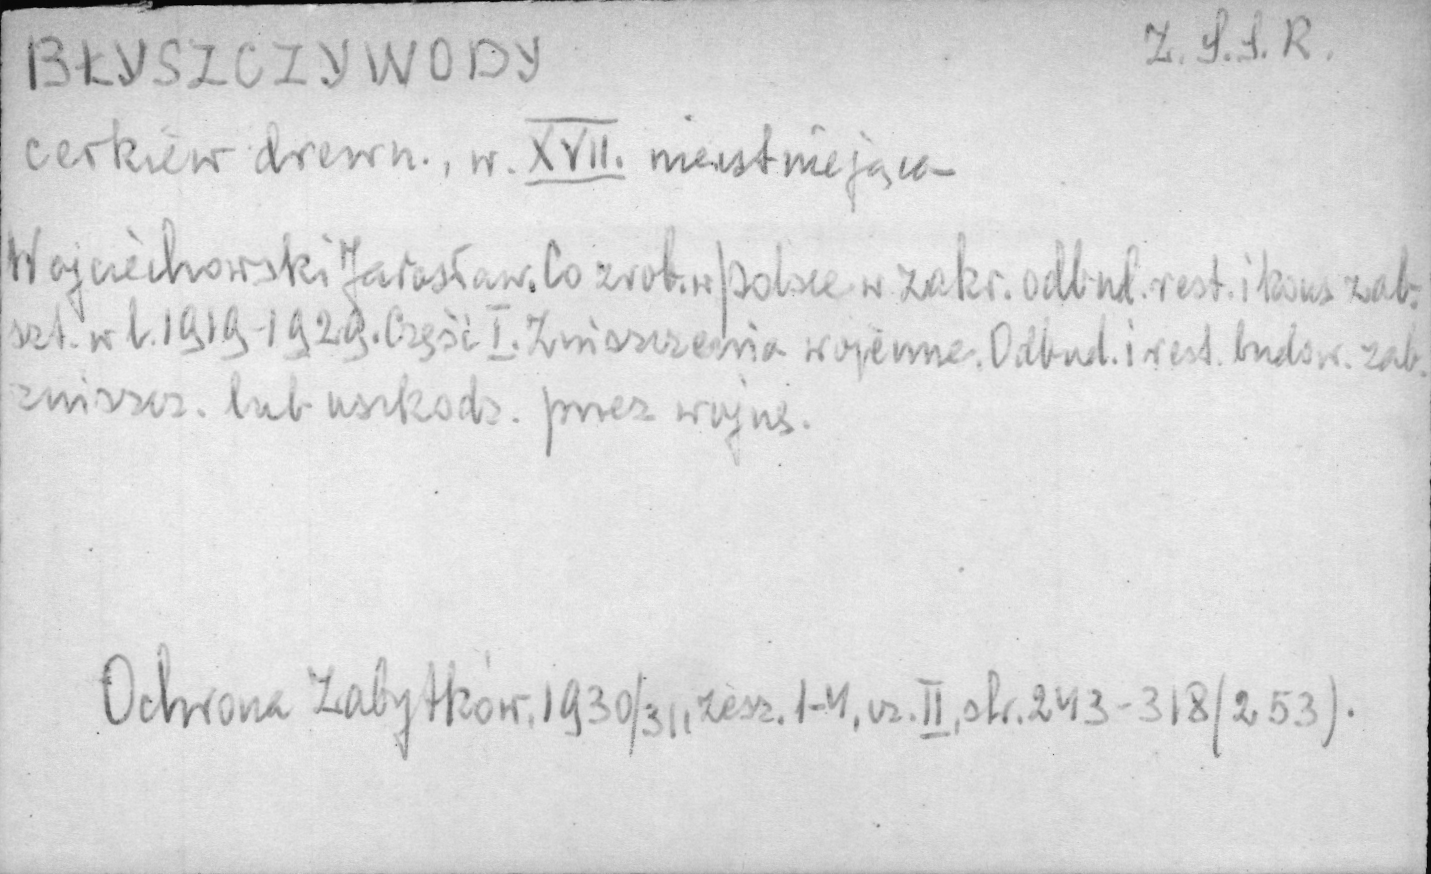 BŁYSZCZYWODY Z.S.S.R.
cerkiew drewn., w. XVII. nieistniejąca
Wojciechowski Jarosław. Co zrob. w Polsce w zakr. odbud. rest. i kons zab.
szt. w l. 1919-1929. Część I. Zniszczenia wojenne. Odbud. i rest. budow. zab.
zniszcz. lub uszkodz. przez wojnę.
Ochrona Zabytków, 1930/31, zesz. 1-4, cz. II, str. 243-318 (253).